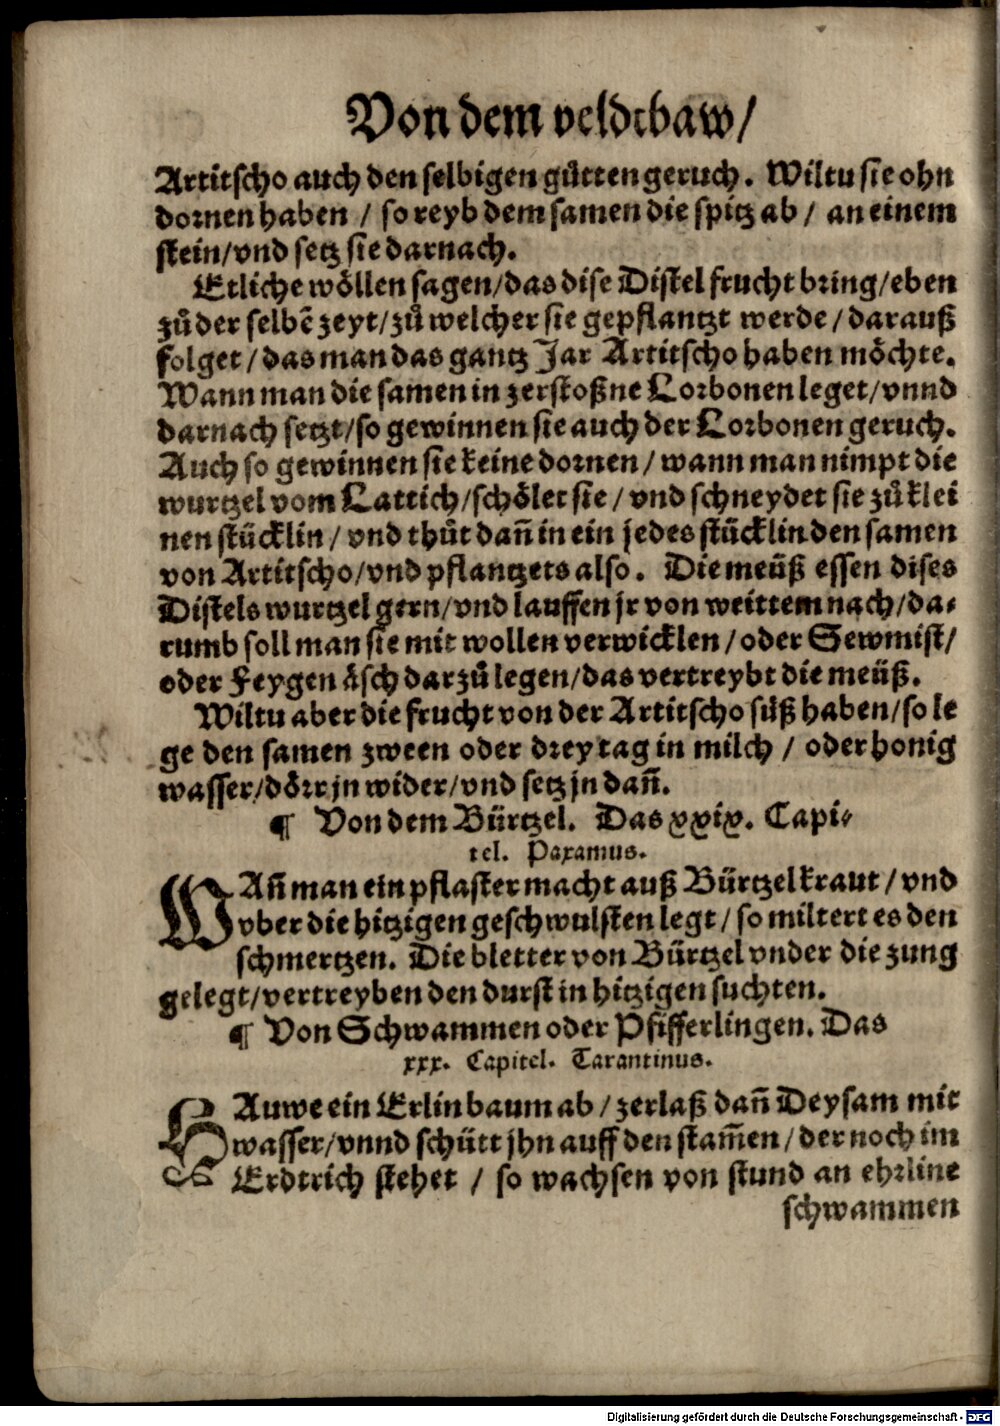 Von dem veldtbaw/
Artitscho auch den selbigen gůtten geruch. Wiltu sie ohn
dornen haben / so reyb dem samen die spitz ab / an einem
stein/vnd setz sie darnach.
Etliche wöllen sagen/das dise Distel frucht bring/eben
zů der selbē zeyt/zů welcher sie gepflantzt werde/darauß
folget/das man das gantz Jar Artitscho haben möchte.
Wann man die samen in zerstoßne Lorbonen leget/vnnd
darnach setzt/so gewinnen sie auch der Lorbonen geruch.
Auch so gewinnen sie keine dornen/wann man nimpt die
wurtzel vom Lattich/schölet sie/vnd schneydet sie zů klei
nen stücklin/vnd thůt dañ in ein jedes stücklin den samen
von Artitscho/vnd pflantzets also. Die meüß essen dises
Distels wurtzel gern/vnd lauffen jr von weittem nach/da⸗
rumb soll man sie mit wollen verwicklen/oder Sewmist/
oder Feygen åsch darzů legen/das vertreybt die meüß.
Wiltu aber die frucht von der Artitscho süß haben/so le
ge den samen zween oder drey tag in milch / oder honig
wasser/dörr jn wider/vnd setz jn dañ.
¶ Von dem Bürtzel. Das xxix. Capi⸗
tel. Paxamus.
WAñ man ein pflaster macht auß Bürtzelkraut/vnd
vber die hitzigen geschwulsten legt/so miltert es den
schmertzen. Die bletter von Bürtzel vnder die zung
gelegt/vertreyben den durst in hitzigen suchten.
¶ Von Schwammen oder Pfifferlingen. Das
xxx. Capitel. Tarantinus.
HAuwe ein Erlin baum ab/zerlaß dañ Deysam mit
wasser/vnnd schütt jhn auff den stam̃en/der noch im
Erdtrich stehet / so wachsen von stund an ehrline
schwammen
Digitalisierung gefördert durch die Deutsche Forschungsgemeinschaft - DFG